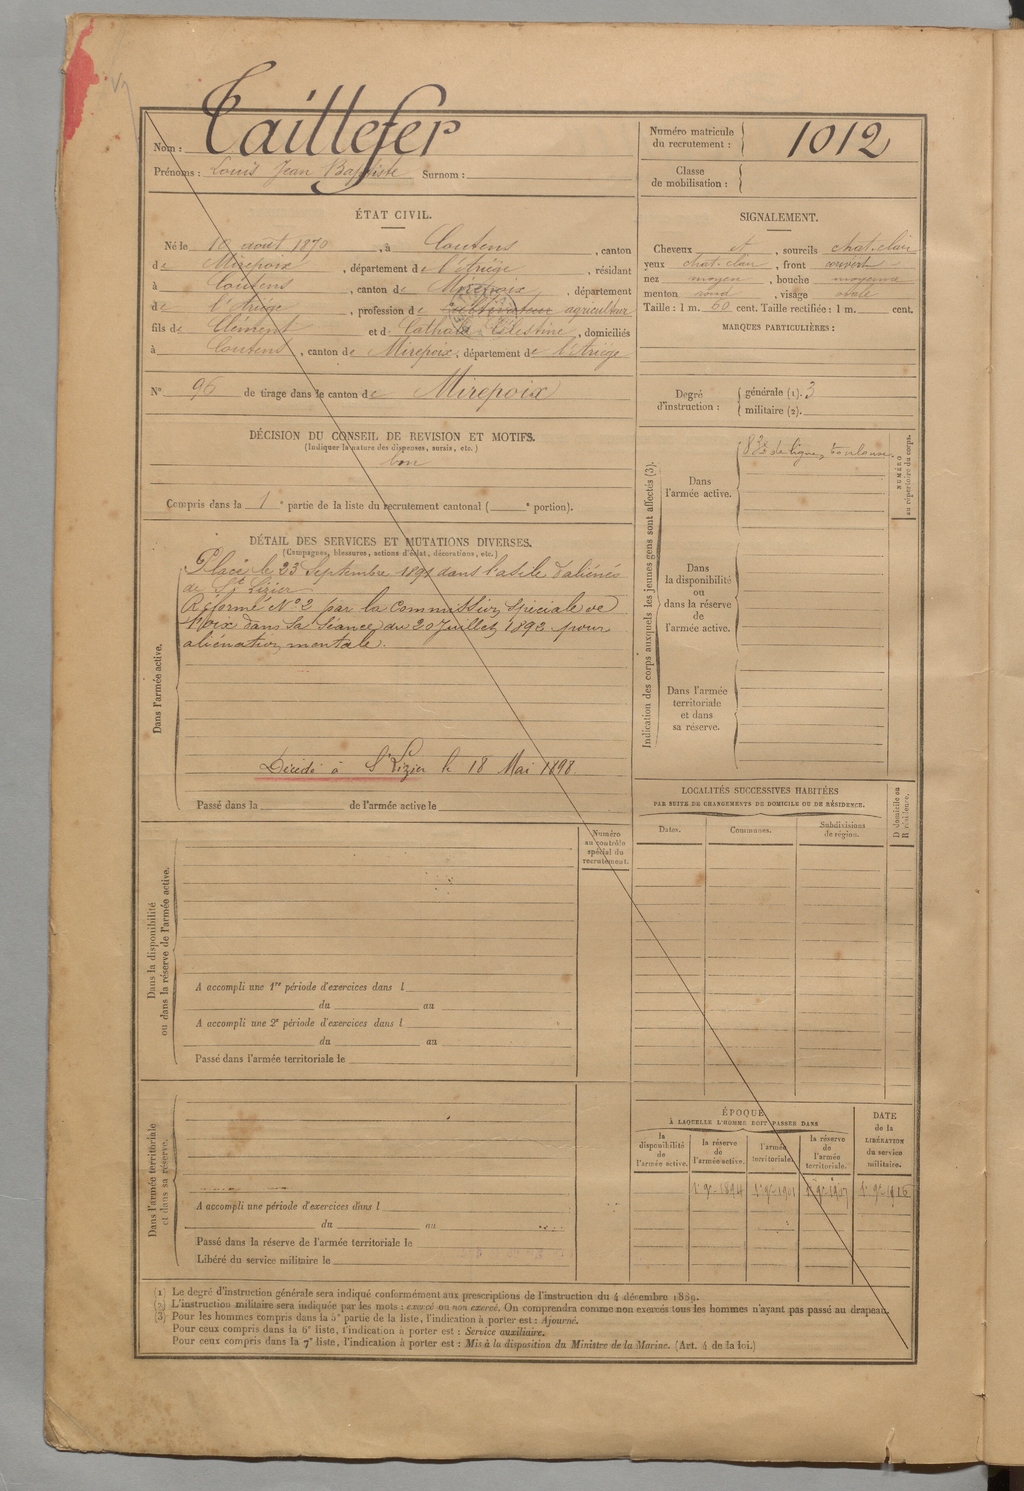 Nom : Taillefer
Prénoms : Louis Jean Baptiste Surnom :
Numéro matricule du recrutement : 1012
Classe de mobilisation :
ÉTAT CIVIL.
Né le 10 août 1870, à Coutens, canton
de Mirepoix, département de l'Ariège, résidant
à Coutens, canton de Mirepoix, département
de l'Ariège, profession de cultivateur agriculteur
fils de Clément et de Cathala Célestine, domiciliés
à Coutens, canton de Mirepoix, département de l'Ariège
N° 96 de tirage dans le canton de Mirepoix
SIGNALEMENT.
Cheveux et, sourcils chat. clair
yeux chat. clair, front couvert
nez moyen, bouche moyenne
menton rond, visage ovale
Taille : 1 m. 60 cent. Taille rectifiée : 1 m. cent.
MARQUES PARTICULIÈRES :
Degré d'instruction : générale (1). 3
militaire (2).
DÉCISION DU CONSEIL DE REVISION ET MOTIFS.
(Indiquer la nature des dispenses, sursis, etc.)
bon
Compris dans la 1e partie de la liste du recrutement cantonal ( e portion).
DÉTAIL DES SERVICES ET MUTATIONS DIVERSES.
(Campagnes, blessures, actions d'éclat, décorations, etc.)
Dans l'armée active.
Placé le 23 Septembre 1891 dans l'asile d'aliénés
de St Lizier
Réformé N° 2 par la Commission spéciale de
Foix dans sa séance du 20 Juillet 1892 pour
aliénation mentale.
Décédé à St Lizier le 18 Mai 1898.
Passé dans la de l'armée active le
Indication des corps auxquels les jeunes gens sont affectés (3).
NUMÉRO au répertoire du corps.
Dans l'armée active.
83e de ligne, toulouse.
Dans la disponibilité ou dans la réserve de l'armée active.
Dans l'armée territoriale et dans sa réserve.
LOCALITÉS SUCCESSIVES HABITÉES
PAR SUITE DE CHANGEMENTS DE DOMICILE OU DE RÉSIDENCE.
Dates. Communes. Subdivisions de région.
D domicile ou R résidence.
Numéro au contrôle spécial du recrutement.
Dans la disponibilité ou dans la réserve de l'armée active.
A accompli une 1re période d'exercices dans l
du au
A accompli une 2e période d'exercices dans l
du au
Passé dans l'armée territoriale le
Dans l'armée territoriale et dans sa réserve.
A accompli une période d'exercices dans l
du au
Passé dans la réserve de l'armée territoriale le
Libéré du service militaire le
ÉPOQUE
À LAQUELLE L'HOMME DOIT PASSER DANS
la disponibilité de l'armée active.
la réserve de l'armée active.
l'armée territoriale.
la réserve de l'armée territoriale.
DATE de la LIBÉRATION du service militaire.
1er 9e 1894 1er 9e 1901 1er 9e 1907 1er 9e 1916
(1) Le degré d'instruction générale sera indiqué conformément aux prescriptions de l'instruction du 4 décembre 1889.
(2) L'instruction militaire sera indiquée par les mots : exercé ou non exercé. On comprendra comme non exercés tous les hommes n'ayant pas passé au drapeau.
(3) Pour les hommes compris dans la 5e partie de la liste, l'indication à porter est : Ajourné.
Pour ceux compris dans la 6e liste, l'indication à porter est : Service auxiliaire.
Pour ceux compris dans la 7e liste, l'indication à porter est : Mis à la disposition du Ministre de la Marine. (Art. 4 de la loi.)